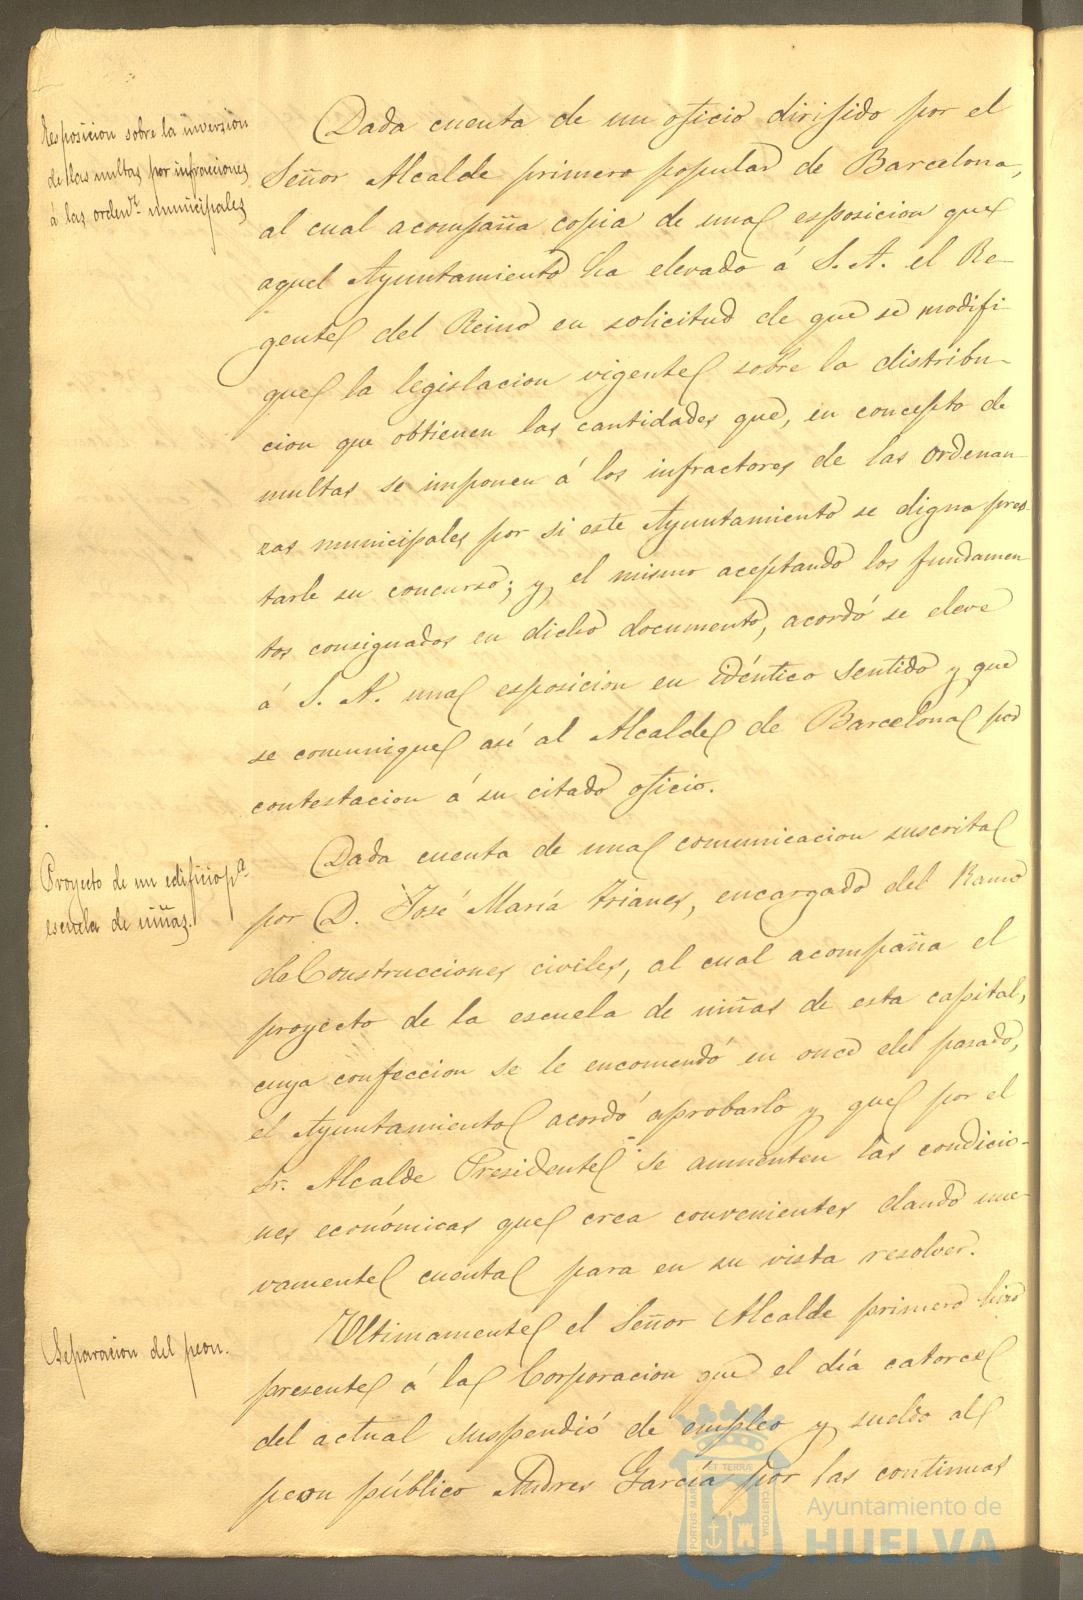 Esposicion sobre la inversion
de las multas por infracciones
á las orden.s municipales
Dada cuenta de un oficio dirijido por el
Señor Alcalde primero popular de Barcelona,
al cual acompaña copia de una esposicion que
aquel Ayuntamiento ha elevado á S. A. el Re-
gente del Reino en solicitud de que se modifi-
que la legislacion vigente sobre la distribu-
cion que obtienen las cantidades que, en concepto de
multas se imponen á los infractores de las ordenan-
zas municipales por si este Ayuntamiento se digna pres-
tarle su concurso; y, el mismo aceptando los fundamen-
tos consignados en dicho documento, acordó se eleve
á S. A. una esposicion en idéntico sentido y que
se comunique así al Alcalde de Barcelona por
contestacion á su citado oficio.
Proyecto de un edificio p.a
escuela de niñas.
Dada cuenta de una comunicacion suscrita
por D. José María Trianes, encargado del Ramo
de Construcciones civiles, al cual acompaña el
proyecto de la escuela de niñas de esta capital,
cuya confeccion se le encomendó en once del pasado,
el Ayuntamiento acordó aprobarlo y que por el
Sr. Alcalde Presidente se aumenten las condicio-
nes económicas que crea convenientes dando nue-
vamente cuenta para en su vista resolver.
Separacion del peon.
Ultimamente el Señor Alcalde primero hizo
presente á la Corporacion que el día catorce
del actual suspendió de empleo y sueldo al
peon público Andres García por las continuas
ET TERRÆ
PORTUS MARIS
CUSTODIA
Ayuntamiento de
HUELVA